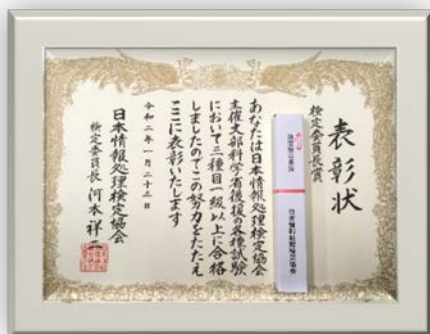 表彰状
検定委員長賞
あなたは日本情報処理検定協会
主催文部科学省後援の各種試験
において三種目一級以上に合格
しましたのでこの努力をたたえ
ここに表彰いたします
令和二年一月二十三日
日本情報処理検定協会
検定委員長 河本祥
日本情報処理検定協会